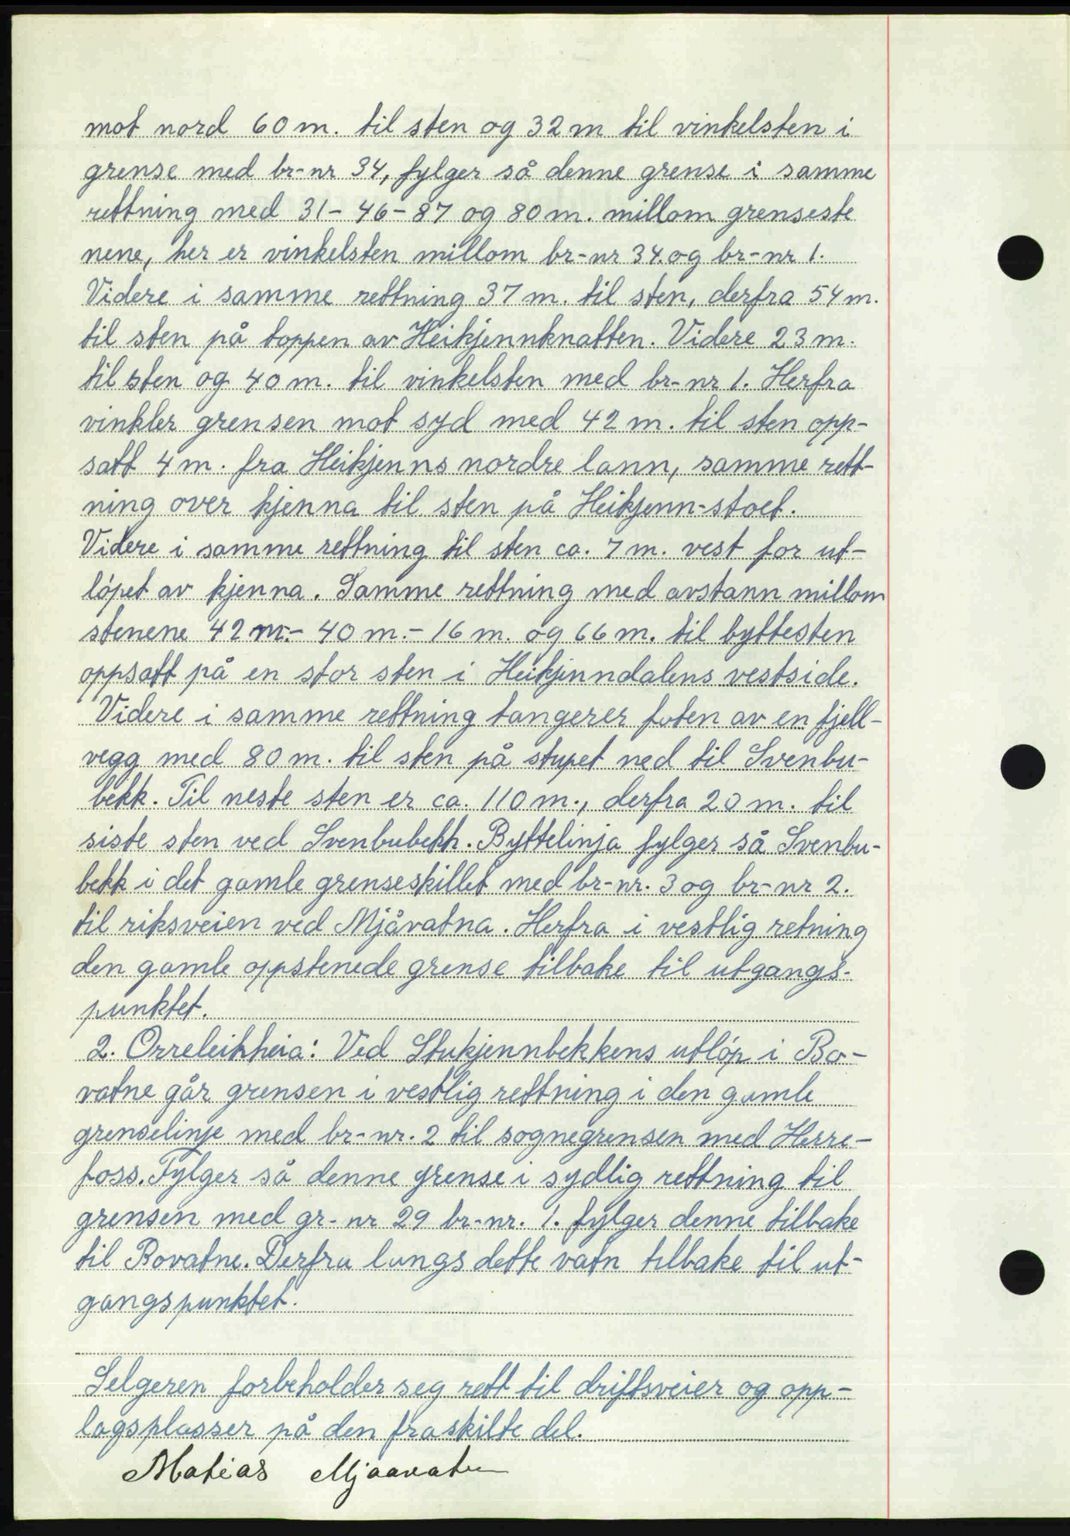 mot nord 60 m. til sten og 32 m til vinkelsten i
grense med br-nr 34, fylger så denne grense i samme
rettning med 31- 46- 87 og 80 m. millom grenseste
nene, her er vinkelsten millom br-nr 34. og br-nr 1.
Videre i samme rettning 37 m. til sten, derfra 54 m.
til sten på toppen av Heikjennknatten. Videre 23 m.
til sten og 40 m. til vinkelsten med br-nr 1. Herfra
vinkler grensen mot syd med 42 m. til sten opp-
satt 4 m. fra Heikjenns nordre lann, samme rett-
ning over kjenna til sten på Heikjenn-stoet.
Videre i samme rettning til sten ca. 7 m. vest for ut-
løpet av kjenna. Samme rettning med avstann millom
stenene 42 m.- 40 m.- 16 m. og 66 m. til byttesten
oppsatt på en stor sten i Heikjenndalens vestside.
Videre i samme rettning tangerer foten av en fjell-
vegg med 80 m. til sten på stupet ned til Svenbu-
bekk. Til neste sten er ca. 110 m., derfra 20 m. til
siste sten ved Svenbubekk. Byttelinja fylger så Svenbu-
bekk i det gamle grenseskillet med br-nr. 3 og br-nr 2.
til riksveien ved Mjåvatna. Herfra i vestlig retning
den gamle oppstenede grense tilbake til utgangs-
punktet.
2. Orreleikheia: Ved Stukjennbekkens utløp i Bo-
vatne går grensen i vestlig rettning i den gamle
grenselinje med br-nr. 2 til sognegrensen med Herre-
foss. Fylger så denne grense i sydlig rettning til
grensen med gr-nr 29 br-nr. 1. fylger denne tilbake
til Bovatne. Derfra langs dette vatn tilbake til ut-
gangspunktet.
Selgeren forbeholder seg rett til driftsveier og opp-
lagsplasser på den fraskilte del.
Matias Mjaavatn